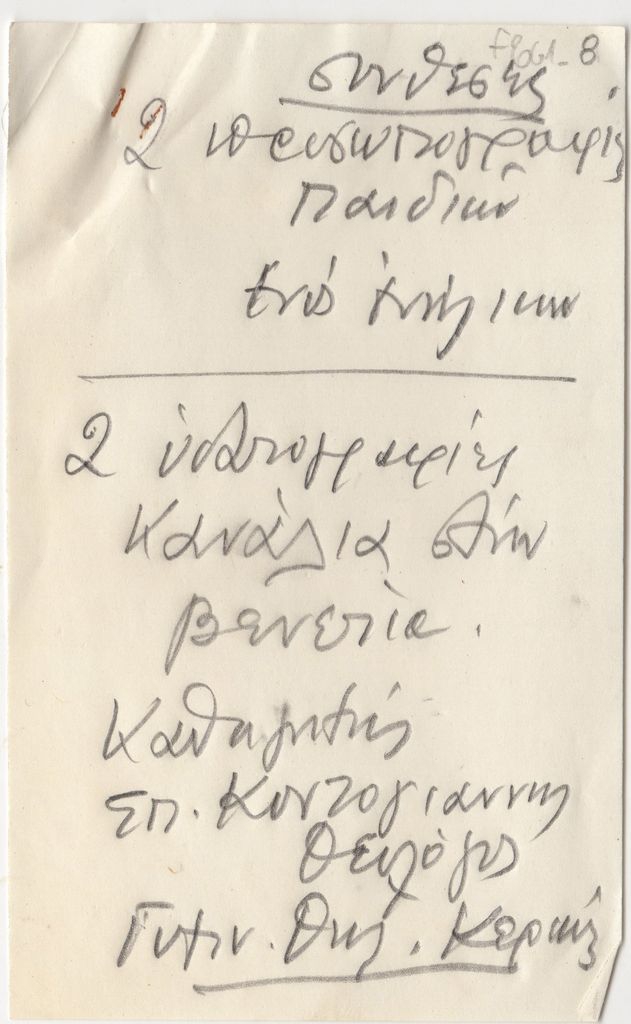 συνθέσεις
2 προσωπογραφίες
παιδικών
ενός ενήλικων
2 ὑδατογραφίες
Κανάλια στήν
Βενετία.
Καθηγητής
Σπ. Κοντογιάννης
Θεολόγος
Γυμν. Θηλ. Κερκ/ς